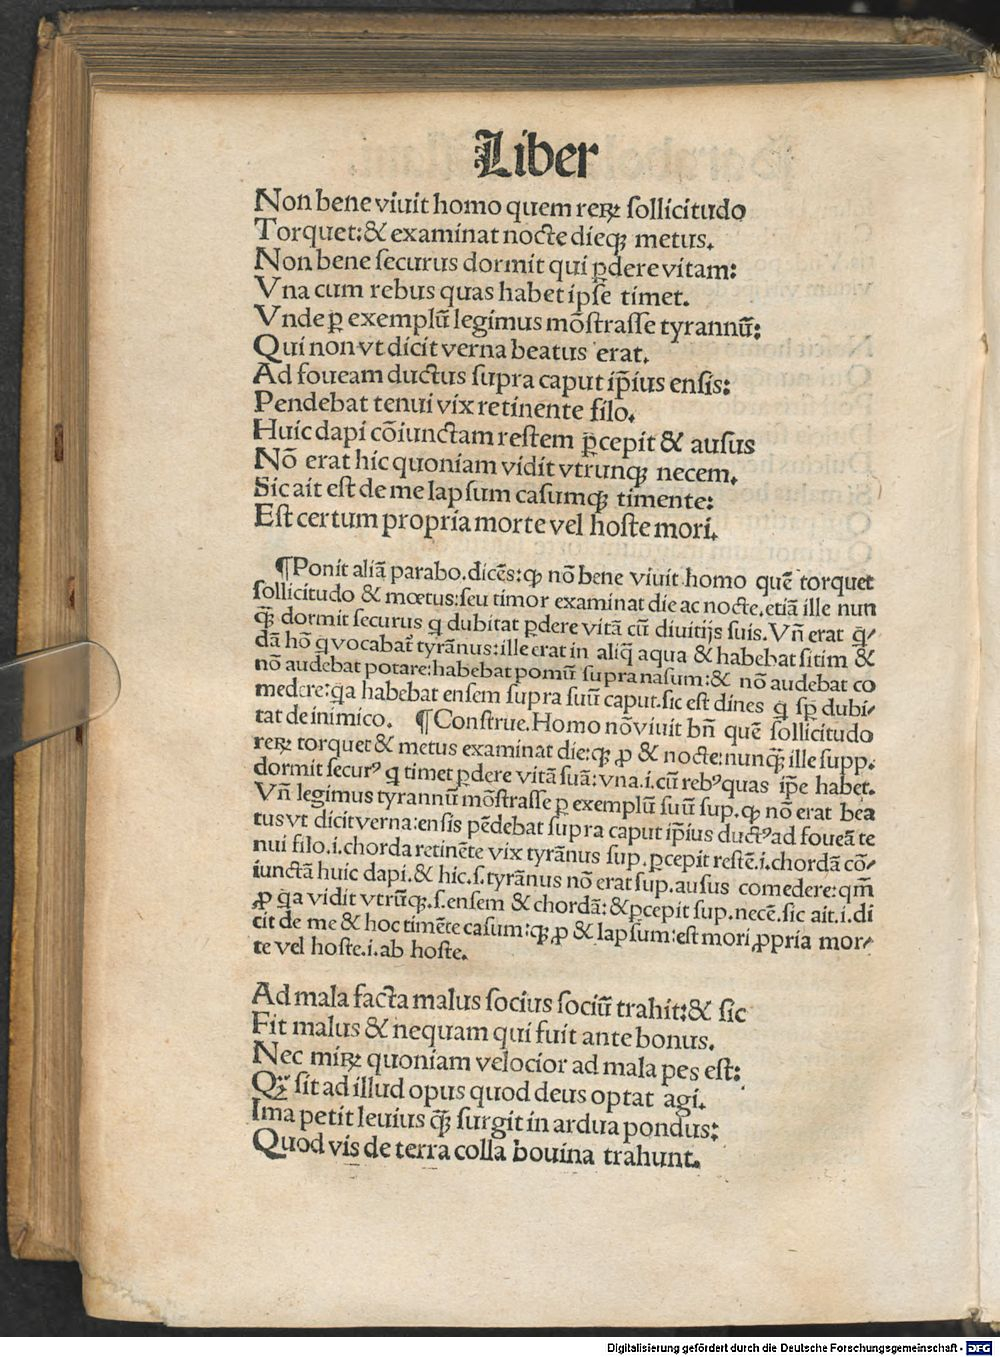 Liber
Non bene viuit homo quem reꝝ ſollicitudo
Torquet:& examinat nocte dieqꝫ metus.
Non bene ſecurus dormit qui ꝑdere vitam:
Vna cum rebus quas habet ipſe timet.
Vnde ꝑ exemplū legimus mōſtraſſe tyrannū:
Qui non vt dicit verna beatus erat.
Ad foueam ductus ſupra caput ip̄ius enſis:
Pendebat tenui vix retinente filo.
Huic dapi cōiunctam reſtem ꝑcepit & auſus
Nō erat hic quoniam vidit vtrunqꝫ necem.
Sic ait eſt de me lapſum caſumqꝫ timente:
Eſt certum propria morte vel hoſte mori.
¶Ponit aliā parabo.dicēs:ꝙ nō bene viuit homo quē torquet
ſollicitudo & mœtus:ſeu timor examinat die ac nocte.etiā ille nun
qꝫ̄ dormit ſecurus q dubitat ꝑdere vitā cū diuitijs ſuis.Vn̄ erat q̄/
dā hō q vocabat̄ tyrānus:ille erat in aliq̄ aqua & habebat ſitim &
nō audebat potare:habebat pomū ſupra naſum:& nō audebat co
medere:q̄a habebat enſem ſupra ſuū caput.ſic eſt dines q ſp̄ dubi/
tat de inimico. ¶Conſtrue.Homo nō viuit bn̄ quē ſollicitudo
reꝝ torquet & metus examinat die:qꝫ ꝓ & nocte:nunqꝫ̄ ille ſupp.
dormit ſecurꝰ q timet ꝑdere vitā ſuā:vna.i.cū rebꝰ quas ip̄e habet.
Vn̄ legimus tyrannū mōſtraſſe ꝑ exemplū ſuū ſup.ꝙ nō erat bea
tus vt dicit verna:enſis pēdebat ſupra caput ip̄ius ductꝰ ad foueā te
nui filo.i.chorda retinēte vix tyrānus ſup.ꝑcepit reſtē.i.chordā cō/
iunctā huic dapi.& hic.ſ.tyrānus nō erat ſup.auſus comedere:qm̄
ꝓ q̄a vidit vtrūqꝫ.ſ.enſem & chordā:&ꝑcepit ſup.necē.ſic ait.i.di
cit de me & hoc timēte caſum:qꝫ ꝓ & lapſum:eſt mori ꝓpria mor/
te vel hoſte.i.ab hoſte.
Ad mala facta malus ſocius ſociū trahit:& ſic
Fit malus & nequam qui fuit ante bonus.
Nec miꝝ quoniam velocior ad mala pes eſt:
Qꝫ̄ ſit ad illud opus quod deus optat agi.
Ima petit leuius qꝫ̄ ſurgit in ardua pondus:
Quod vis de terra colla bouina trahunt.
Digitalisierung gefördert durch die Deutsche Forschungsgemeinschaft - DFG